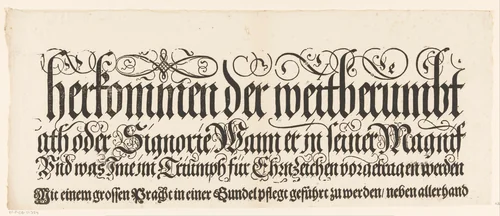 herkommen der weitberumbt
ath oder Signorie Wann er in seiner Magnif
Und was Ime im Triumph für Ehrnzeichen vorgetragen werden
Mit einem grossen Pracht in einer Gundel pflegt geführt zu werden / neben allerhand